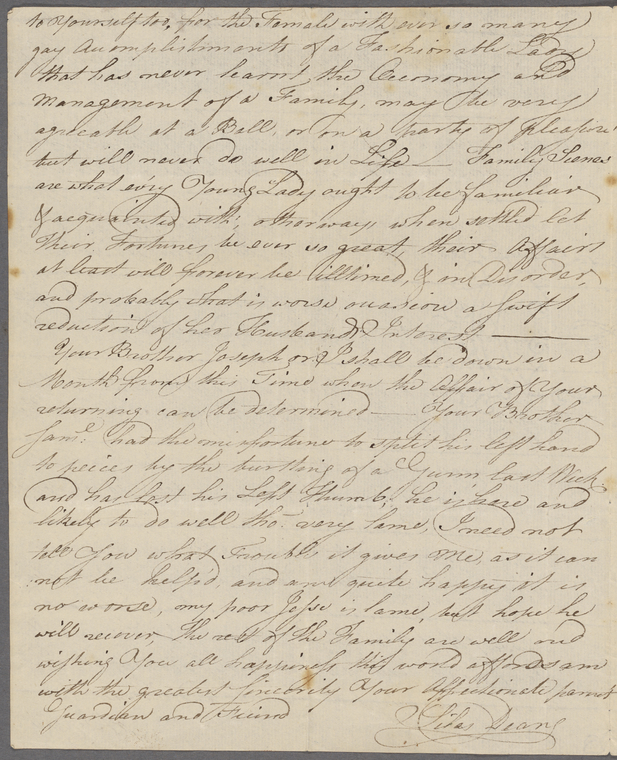 to Yourself too, for the Female with ever so many
gay Accomplishments of a Fashionable Lady
that has never learnt, the Œconomy and
management of a Family, may be very
agreeable at a Ball, or on a party of pleasure
but will never do well in Life — Family Scenes
are what ev'ry Young Lady ought to be familiar
& acquainted with, otherways, when settled let
their Fortunes be ever so great their Affairs
at least will forever be illtimed, & in Disorder,
and probably what is worse occasion a swift
reduction of her Husbands Interest —
Your Brother Joseph or I shall be down in a
Month from this Time when the Affair of Your
returning can be determined — Your Brother
Saml. had the misfortune to split his left hand
to peices by the bursting of a Gunn last Week
and has lost his Left Thumb, he is here and
likely to do well tho. very lame, I need not
tell You what Trouble it gives me, as it can
not be help'd, and am quite happy it is
no worse, my poor Jesse is lame, but hope he
will recover, the rest of the Family are well and
wishing You all happiness this world affords am
with the greatest sincerity Your Affectionate parent
Guardian and Friend
Silas Deane